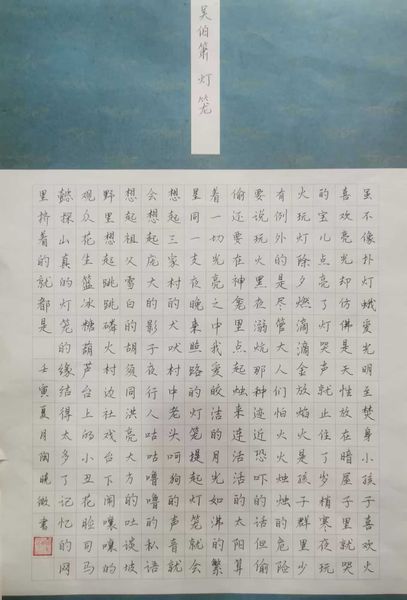 吴伯箫 灯笼
虽不像扑灯蛾爱光明至焚身小孩子喜欢火
喜欢亮光却仿佛是天性放在暗屋子里就哭
的宝儿点亮了灯哭声就止住了岁梢寒夜玩
火玩灯除夕燃滴滴金放焰火是孩子群里少
有例外的是尽管大人们怕火火烛的危险
要说玩火黑夜溺炕那种迹近恐吓的话但偷
偷还要在神龛里点起烛来连活活的太阳算
着一切光亮之中我爱皎洁的月如沸的
星同一支夜晚来照路的灯笼提起灯笼就会
想起三家村的犬吠村中老头呵狗的声音就
会想起庞大的影子夜行人咕咕噜噜的私语
想起祖父雪白的胡须同洪亮大方的谈吐坡
野里想起跳跳的磷火村边社戏台下闹嚷嚷的
观众花生篮冰糖葫芦台上的小丑花脸司马
懿探山真的灯笼的缘结得太多了记忆的网
里挤着的就都是 壬寅夏月陶晓微书